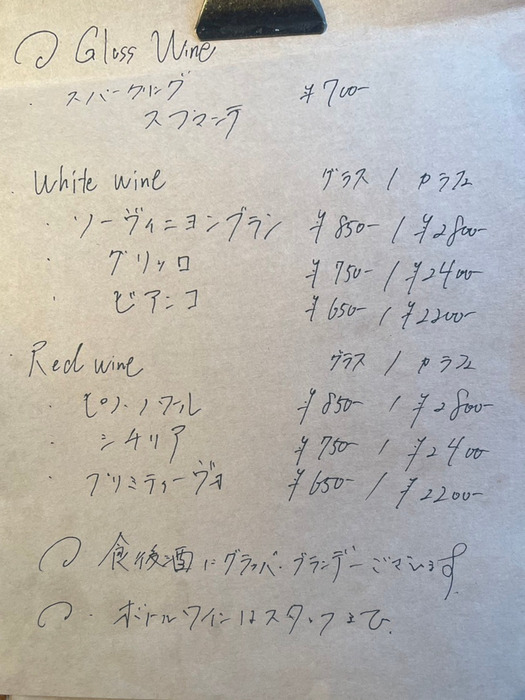 Glass Wine
・スパークリング ¥700-
スプマンテ
White wine グラス / カラフェ
・ソーヴィニヨンブラン ¥850- / ¥2800-
・グリッロ ¥750- / ¥2400-
・ビアンコ ¥650- / ¥2200-
Red wine グラス / カラフェ
・ピノ・ノワール ¥850- / ¥2800-
・シチリア ¥750- / ¥2400-
・プリミティーヴォ ¥650- / ¥2200-
食後酒にグラッパ・ブランデーございます。
・ボトルワインはスタッフまで。